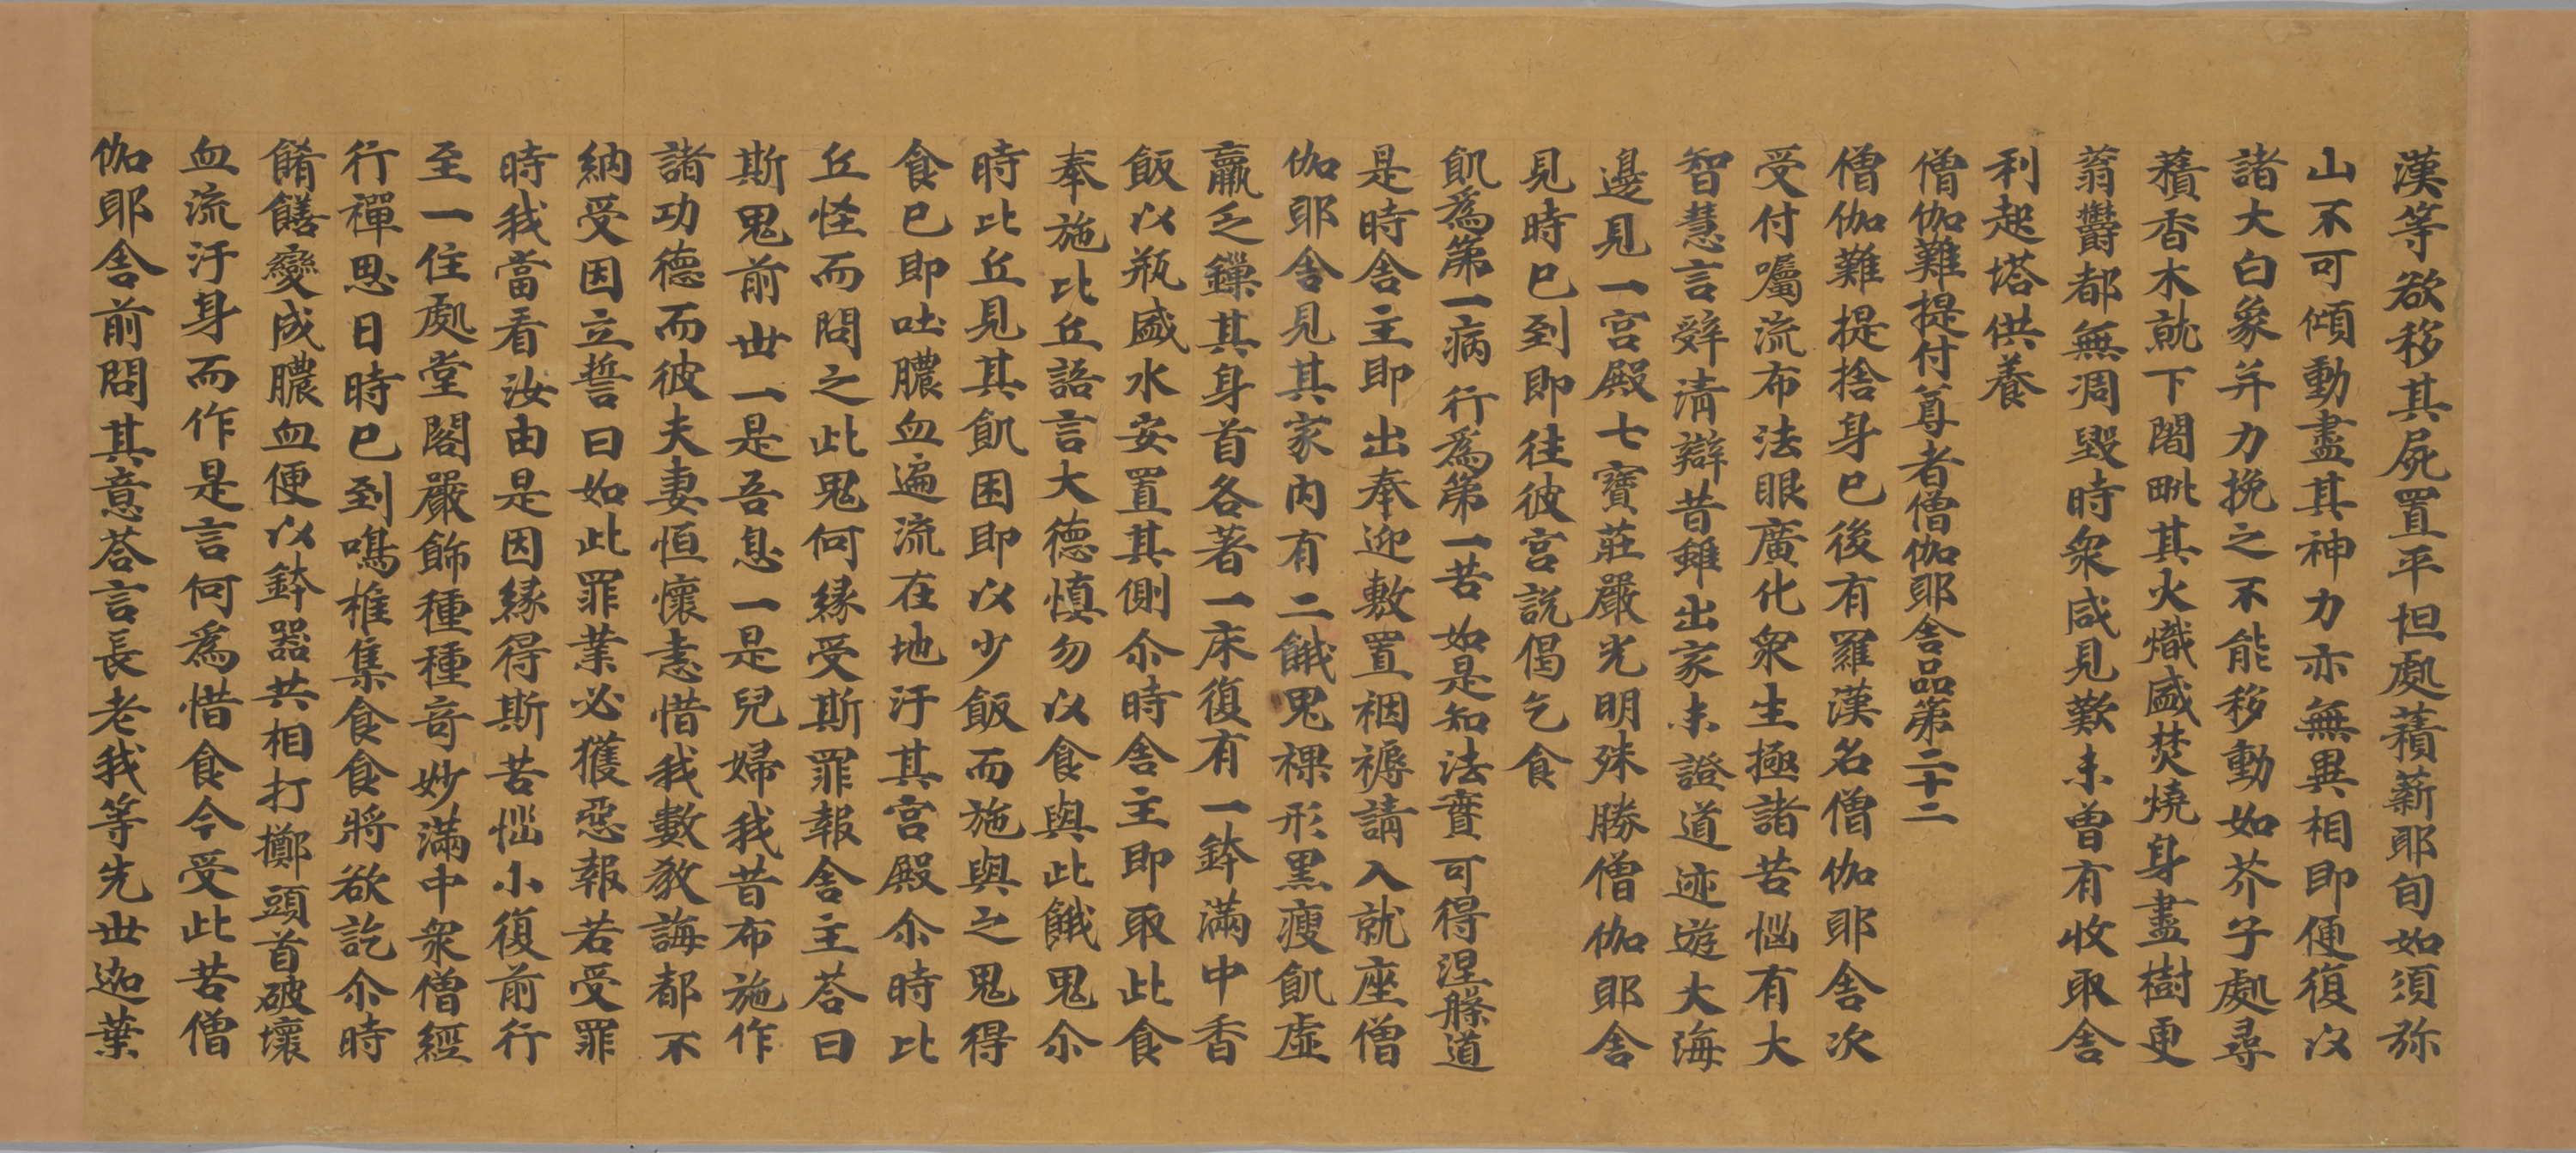 漢等欲移其屍置平坦處積薪耶旬如須弥
山不可傾動盡其神力亦無異相即便復以
諸大白象并力挽之不能移動如芥子處尋
積香木就下闍毗其火熾盛焚燒身盡樹更
蓊鬱都無凋毀時衆咸見歎未曾有收取舍
利起塔供養
僧伽難提付尊者僧伽耶舍品第二十二
僧伽難提捨身已後有羅漢名僧伽耶舍次
受付囑流布法眼廣化衆生極諸苦惱有大
智慧言辝清辯昔雖出家未證道迹遊大海
邊見一宮殿七寶莊嚴光明殊勝僧伽耶舍
見時已到即往彼宮說偈乞食
飢為第一病 行為第一苦 如是知法寶 可得涅槃道
是時舍主即出奉迎敷置裀褥請入就座僧
伽耶舍見其家內有二餓鬼裸形黒瘦飢虛
羸乏鏁其身首各著一床復有一鉢滿中香
飯以瓶盛水安置其側尒時舍主即取此食
奉施比丘語言大德慎勿以食與此餓鬼尒
時比丘見其飢困即以少飯而施與之鬼得
食已即吐膿血遍流在地汙其宮殿尒時比
丘怪而問之此鬼何緣受斯罪報舍主荅曰
斯鬼前世一是吾息一是兒婦我昔布施作
諸功德而彼夫妻恒懷恚惜我數教誨都不
納受因立誓曰如此罪業必獲惡報若受罪
時我當看汝由是因緣得斯苦惱小復前行
至一住處堂閣嚴飾種種奇妙滿中衆僧經
行禪思日時已到鳴椎集食食將欲訖尒時
餚饍變成膿血便以鉢器共相打擲頭首破壞
血流汙身而作是言何為惜食今受此苦僧
伽耶舍前問其意荅言長老我等先世迦葉